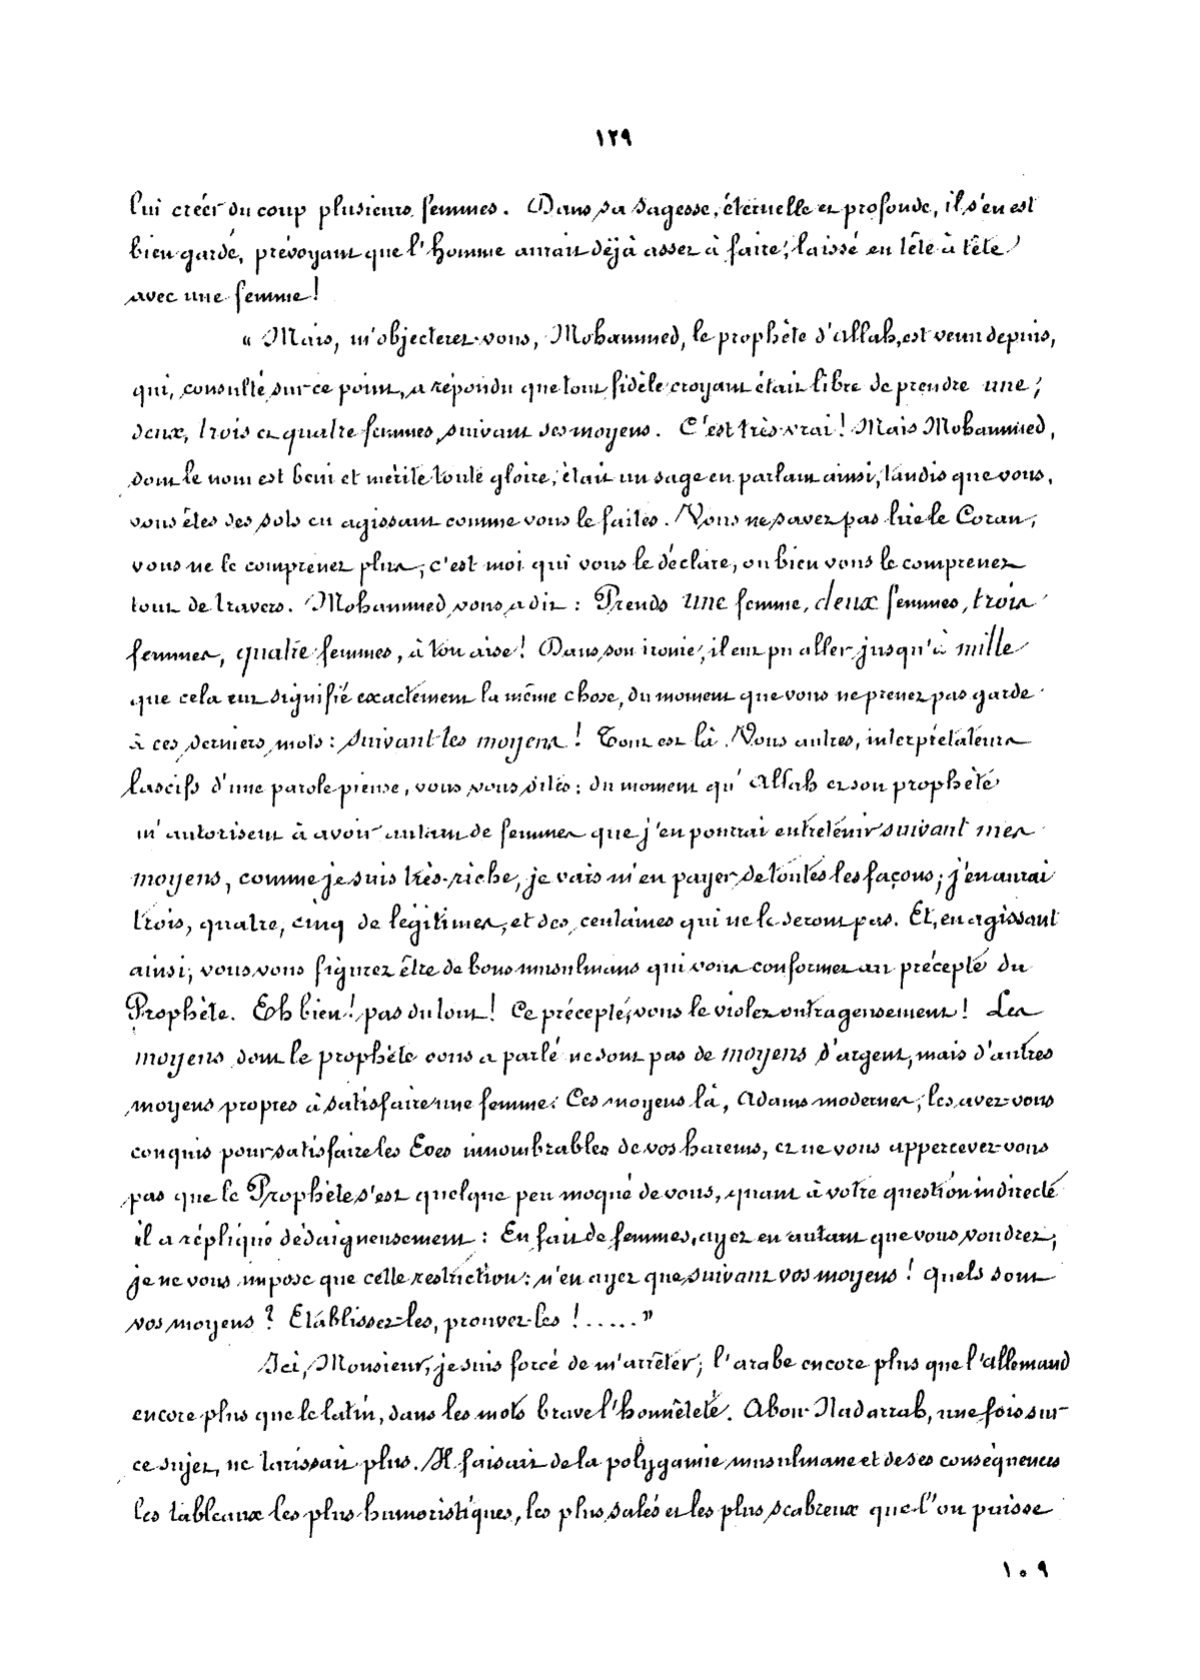 ١٢٩
lui créer du coup plusieurs femmes. Dans sa sagesse, éternelle et profonde, il s'en est
bien gardé, prévoyant que l'homme aurait déjà assez à faire, laissé en tête à tête
avec une femme!
« Mais, m'objecterez-vous, Mohammed, le prophète d'Allah, est venu depuis,
qui, consulté sur ce point, a répondu que tout fidèle croyant était libre de prendre une,
deux, trois et quatre femmes suivant ses moyens. C'est très-vrai! Mais Mohammed,
dont le nom est béni et mérite toute gloire, était un sage en parlant ainsi, tandis que vous,
vous êtes des sots en agissant comme vous le faites. Vous ne savez pas lire le Coran,
vous ne le comprenez plus, c'est moi qui vous le déclare, ou bien vous le comprenez
tout de travers. Mohammed vous a dit: Prends une femme, deux femmes, trois
femmes, quatre femmes, à ton aise! Dans son ironie, il eut pu aller jusqu'à mille
que cela eut signifié exactement la même chose, du moment que vous ne prenez pas garde
à ces derniers mots: suivant tes moyens! Tout est là. Vous autres, interprétateurs
lascifs d'une parole pieuse, vous vous dites: du moment qu'Allah et son prophète
m'autorisent à avoir autant de femmes que j'en pourrai entretenir suivant mes
moyens, comme je suis très-riche, je vais m'en payer de toutes les façons; j'en aurai
trois, quatre, cinq de légitimes, et des centaines qui ne le seront pas. Et, en agissant
ainsi, vous vous figurez être de bons musulmans qui vous conformez au précepte du
Prophète. Eh bien! pas du tout! Ce précepte, vous le violez outrageusement! Les
moyens dont le prophète vous a parlé ne sont pas de moyens d'argent, mais d'autres
moyens propres à satisfaire une femme. Ces moyens là, Adams modernes, les avez-vous
conquis pour satisfaire les Eves innombrables de vos harems, et ne vous appercevez-vous
pas que le Prophète s'est quelque peu moqué de vous, quant à votre question indirecte
il a répliqué dédaigneusement: En fait de femmes, ayez en autant que vous voudrez,
je ne vous impose que cette restriction: n'en ayez que suivant vos moyens! Quels sont
vos moyens? Etablissez-les, prouvez-les!....."
Ici, Monsieur, je suis forcé de m'arrêter; l'arabe encore plus que l'Allemand
encore plus que le latin, dans les mots brave l'honnêteté. Abou Naddarrah, une fois sur
ce sujet, ne tarissait plus. Il faisait de la polygamie musulmane et de ses conséquences
les tableaux les plus humoristiques, les plus salés et les plus scabreux que l'on puisse
١٠٩